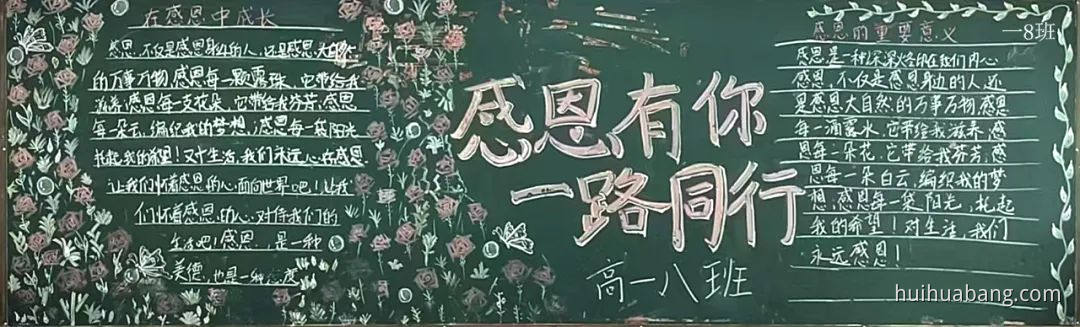 在感恩中成长
感恩,不仅是感恩身边的人,还是感恩大自然
的万事万物,感恩每一颗露珠,它带给我
滋养,感恩每一支花朵,它带给我芬芳,感恩
每一朵云,编织我的梦想,感恩每一袋阳光
托起我的希望!对生活,我们永远心存感恩
让我们怀着感恩的心面向世界吧!让我
们怀着感恩的心,对待我们的
生活吧!感恩,是一种
美德,也是一种态度
感恩有你
一路同行
高一八班
感恩的重要意义
一8班
感恩是一种深深烙印在我们内心
感恩,不仅是感恩身边的人,还
是感恩大自然的万事万物,感恩
每一滴露水,它带给我滋养,感
恩每一朵花,它带给我芬芳,感
恩每一朵白云,编织我的梦
想,感恩每一袋阳光,托起
我的希望!对生活,我们
永远感恩!
huihuabang.com